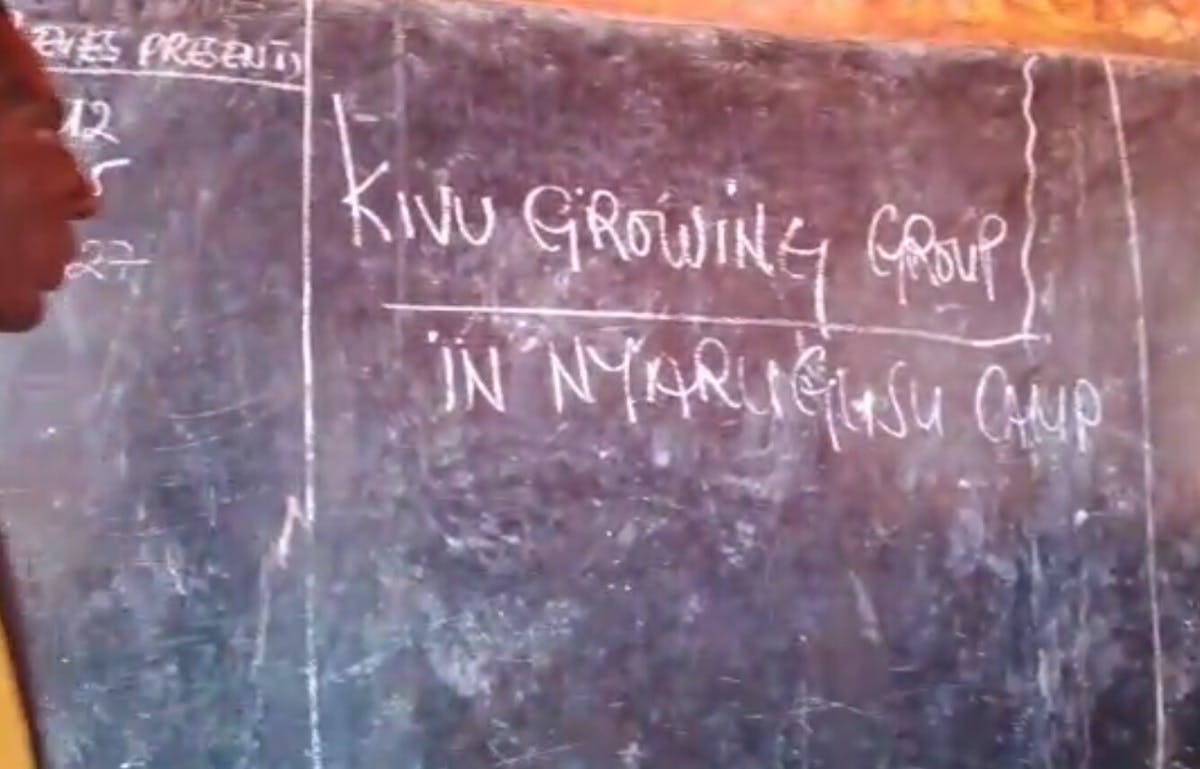 PRESENTS
12
5
27
KIVU GROWING GROUP
IN NYARUGUSU CAMP